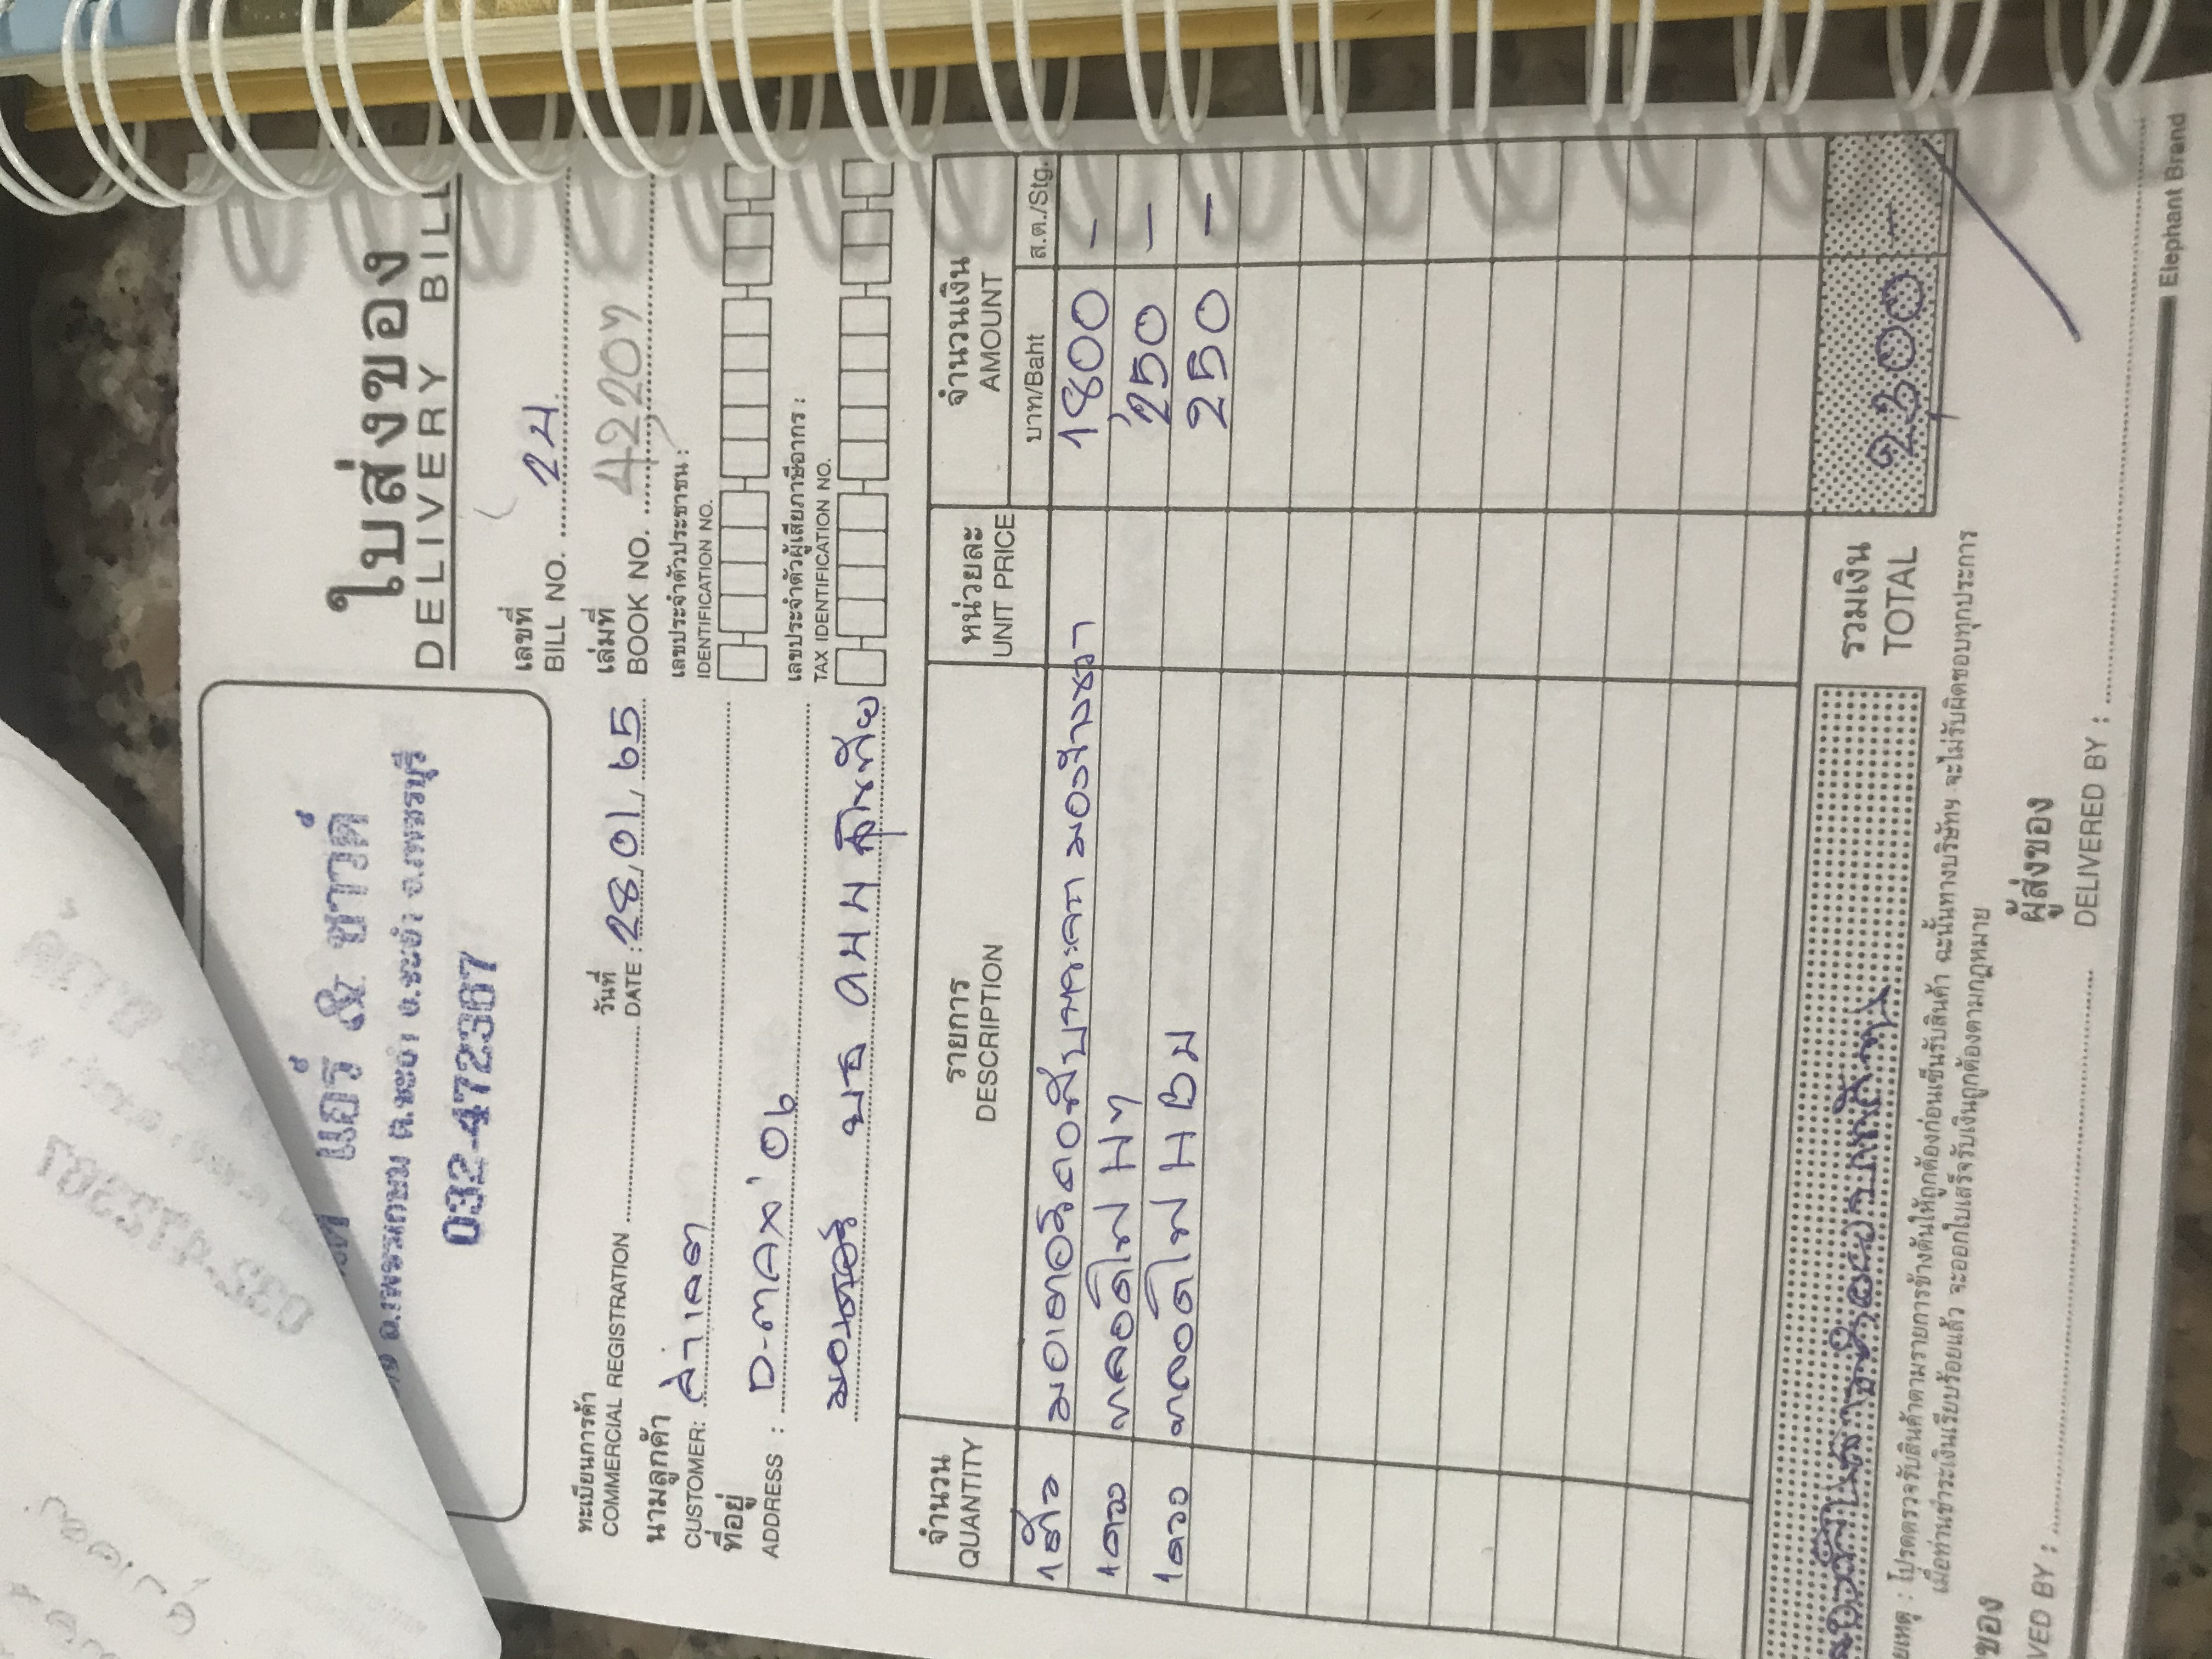 ใบส่งของ
DELIVERY BILL
แอร์ & ซาวด์
ถ.เพชรเกษม ต.ชะอำ อ.ชะอำ จ.เพชรบุรี
032-472367
เลขที่
BILL NO. 24
เล่มที่
BOOK NO. 42207
ทะเบียนการค้า
COMMERCIAL REGISTRATION
วันที่
DATE : 28, 01, 65
เลขประจำตัวประชาชน :
IDENTIFICATION NO.
นามลูกค้า
CUSTOMER:
ที่อยู่
ADDRESS : D-MAX' 06
เลขประจำตัวผู้เสียภาษีอากร :
TAX IDENTIFICATION NO.
บธ
จำนวน
QUANTITY
รายการ
DESCRIPTION
หน่วยละ
UNIT PRICE
จำนวนเงิน
AMOUNT
บาท/Baht
ส.ต./Stg.
1 ตัว มอเตอร์ 1800 -
1 ดวง หลอดไฟ H7 250 -
1 ดวง หลอดไฟ HB4 250 -
รวมเงิน
TOTAL
2,300 -
ยเหตุ : โปรดตรวจรับสินค้าตามรายการข้างต้นให้ถูกต้องก่อนเซ็นรับสินค้า ฉะนั้นทางบริษัทฯ จะไม่รับผิดชอบทุกประการ
เมื่อท่านชำระเงินเรียบร้อยแล้ว จะออกใบเสร็จรับเงินถูกต้องตามกฎหมาย
ของ
VED BY :
ผู้ส่งของ
DELIVERED BY :
Elephant Brand